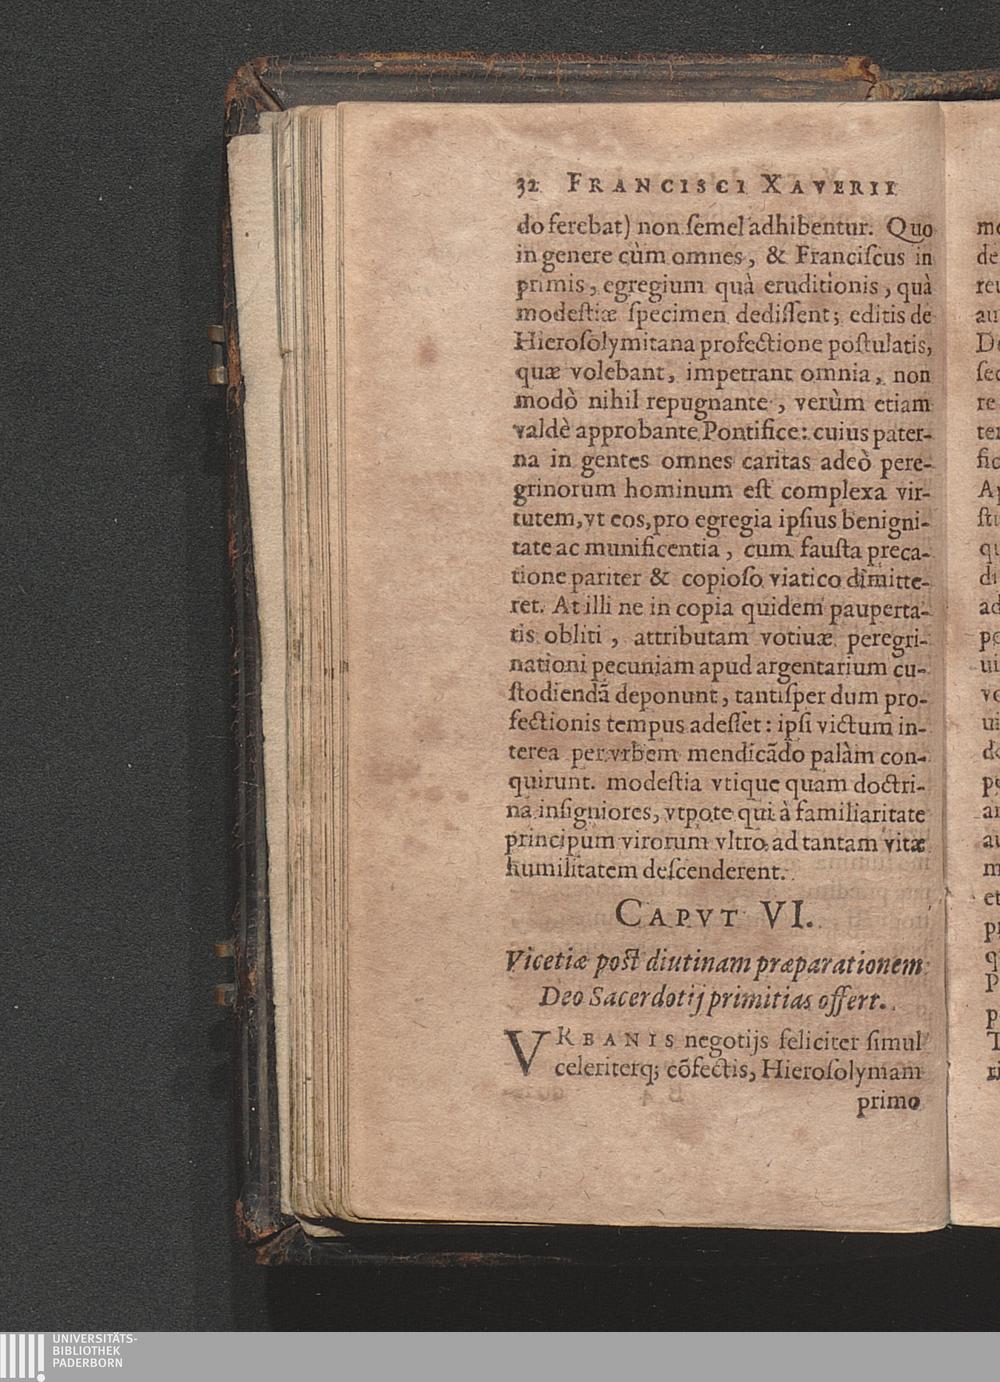 32 FRANCISCI XAVERII
do ferebat) non ſemel adhibentur. Quo
in genere cùm omnes, & Franciſcus in
primis, egregium quà eruditionis, quà
modeſtiæ ſpecimen dediſſent; editis de
Hieroſolymitana profectione poſtulatis,
quæ volebant, impetrant omnia, non
modò nihil repugnante, verùm etiam
valdè approbante Pontifice: cuius pater-
na in gentes omnes caritas adeò pere-
grinorum hominum eſt complexa vir-
tutem, vt eos, pro egregia ipſius benigni-
tate ac munificentia, cum fauſta preca-
tione pariter & copioſo viatico dimitte-
ret. At illi ne in copia quidem pauperta-
tis obliti, attributam votiuæ peregri-
nationi pecuniam apud argentarium cu-
ſtodiendā deponunt, tantiſper dum pro-
fectionis tempus adeſſet: ipſi victum in-
terea per vrbem mendicādo palàm con-
quirunt. modeſtia vtique quam doctri-
na inſigniores, vtpote qui à familiaritate
principum virorum vltro ad tantam vitæ
humilitatem deſcenderent.
CAPVT VI.
Vicetiæ poſt diutinam præparationem
Deo Sacerdotij primitias offert.
VRBANIS negotijs feliciter ſimul
celeriterq; cōfectis, Hieroſolymam
primo
UNIVERSITÄTS-
BIBLIOTHEK
PADERBORN